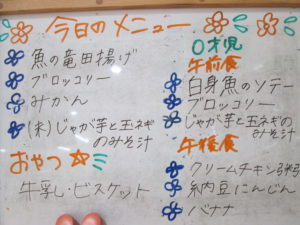 今日のメニュー
魚の竜田揚げ
ブロッコリー
みかん
(米)じゃが芋と玉ネギ
のみそ汁
おやつ
牛乳・ビスケット
0才児
午前食
白身魚のソテー
ブロッコリー
じゃが芋と玉ネギの
みそ汁
午後食
クリームチキン
納豆にんじん
バナナ